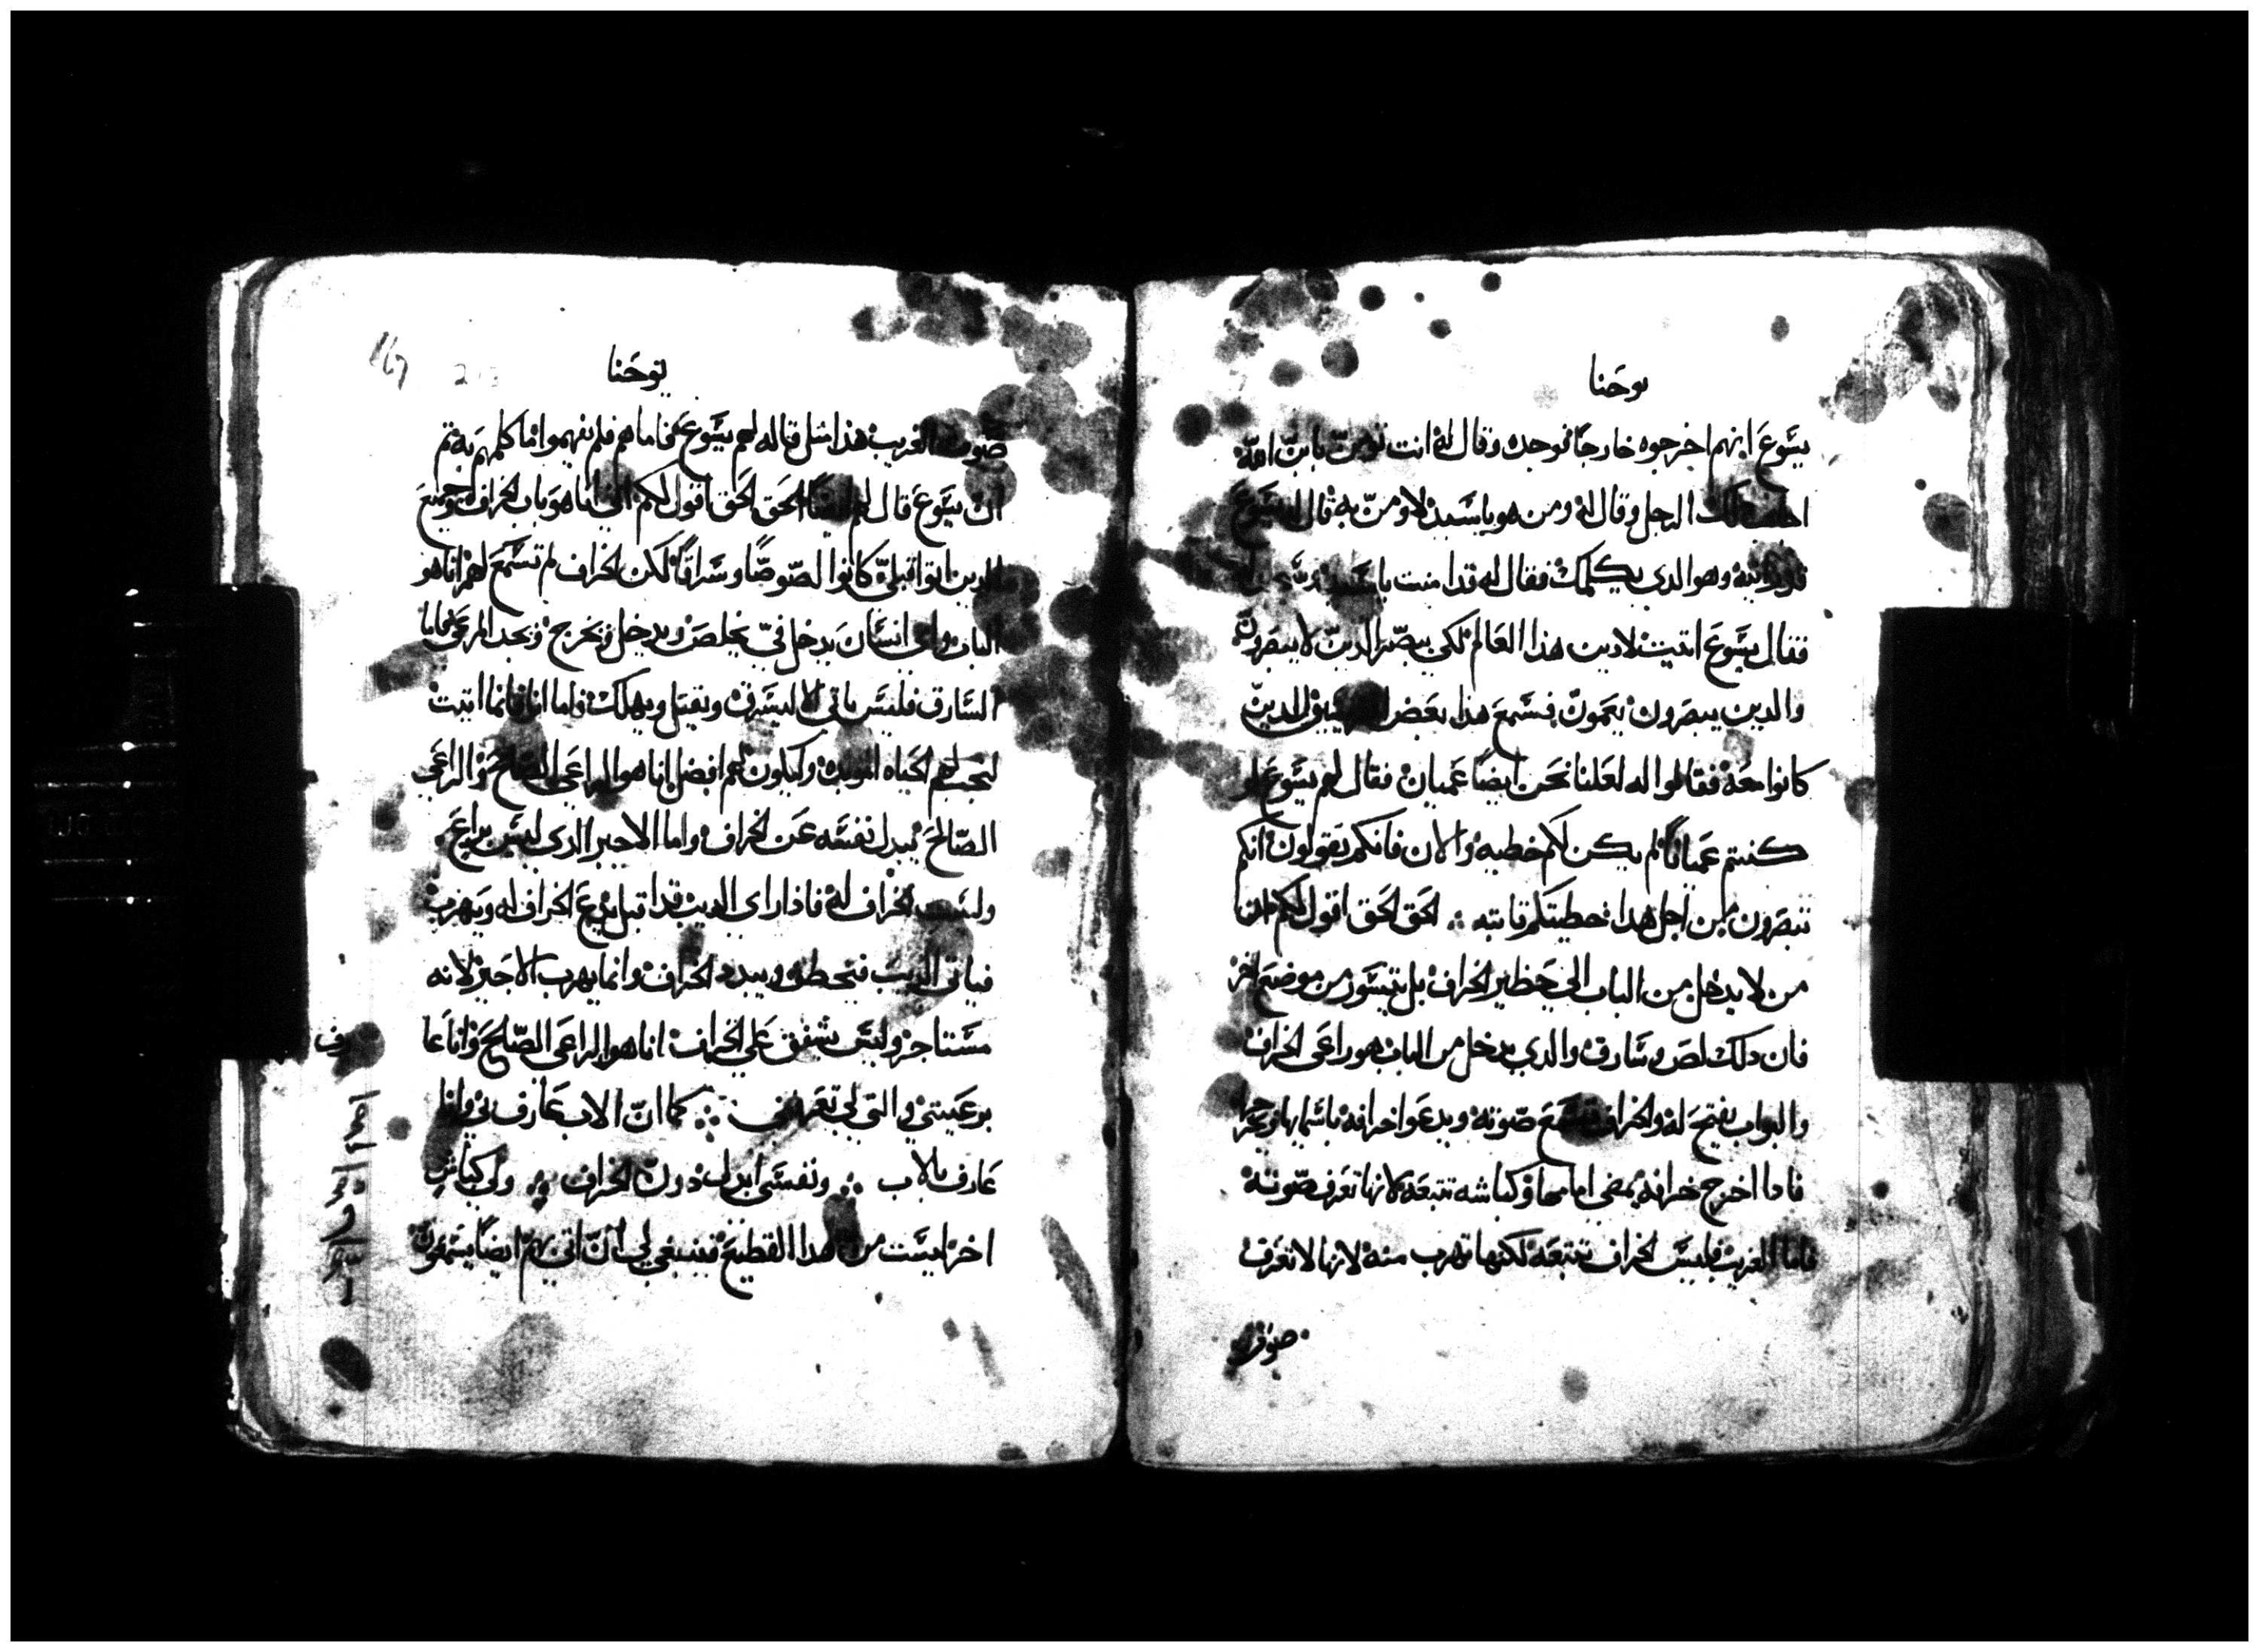 يوحنا
يسوع انهم اخرجوه خارجًا فوجده وقال له انت تومن بابن الله
اجاب ذلك الرجل وقال له ومن هو يا سيد لاومن به قال له يسوع
قد رايته وهو الدي يكلمك فقال له قد امنت يا سيد
فقال يسوع اتيت لادين هذا العالم لكي يبصر الدين لا يبصرون
والدين يبصرون يعمون فسمع هذا بعض الدين
كانوا معه فقالوا له لعلنا نحن ايضًا عميان فقال لهم يسوع لو
كنتم عميانًا لم يكن لكم خطيه والان فانكم تقولون انكم
تبصرون من اجل هدا خطيتكم تابته ∴ الحق الحق اقول لكم ان
من لا يدخل من الباب الي حظير الخراف بل يتسور من موضع اخر
فان دلك لص وسارق والدي يدخل من الباب هو راعي الخراف
والبواب يفتح له والخراف تسمع صوته ويدعوا خرافه باسمايها ويخرجها
فادا اخرج خرافه يمضي امامها وكباشه تتبعه لانها تعرف صوته
فاما الغريب فليس الخراف تتبعه لكنها تهرب منه لانها لا تعرف
صوت
يوحنا
صوت الغريب هذا مثل قاله لهم يسوع فاما هم فلم يفهموا ما كلمهم به تم
ان يسوع قال لهم ايضًا الحق الحق اقول لكم اني انا هو باب الخراف وجميع
الدين اتوا قبلي كانوا لصوصًا وسراقًا لكن الخراف لم تسمع لهم انا هو
الباب واي انسان يدخل في يخلص ويدخل ويخرج ويجد المرعي فاما
السارق فليس ياتي الا ليسرق ويقتل ويهلك واما انا فانما اتيت
لتجب لهم الحياه الموبده وليكون لهم افضل انا هو الراعي الصالح والراعي
الصالح يبدل نفسه عن الخراف واما الاجير الدي ليس براع
وليست الخراف له فادا راي الديب قد اقبل يدع الخراف له ويهرب
فياتي الديب فيخطف ويبدد الخراف وانما يهرب الاجير لانه
مستاجر وليس يشفق علي الخراف انا هو الراعي الصالح وانا عا
رف
برعيتي والتي لي تعرفني ∴ كما ان الاب عارف بي وانا
عارف بالاب ∴ ونفسي ابدل دون الخراف ∴ ولي كباش
اخر ليست من هدا القطيع فينبغي لي ان اتي بهم ايضًا يسمعون